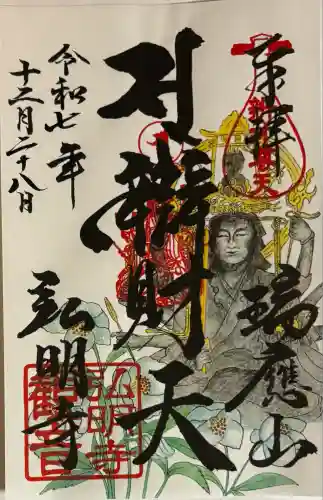 奉拝
瑞應山
大辯財天
令和七年
十二月二十八日
弘明寺
弘明寺
観音